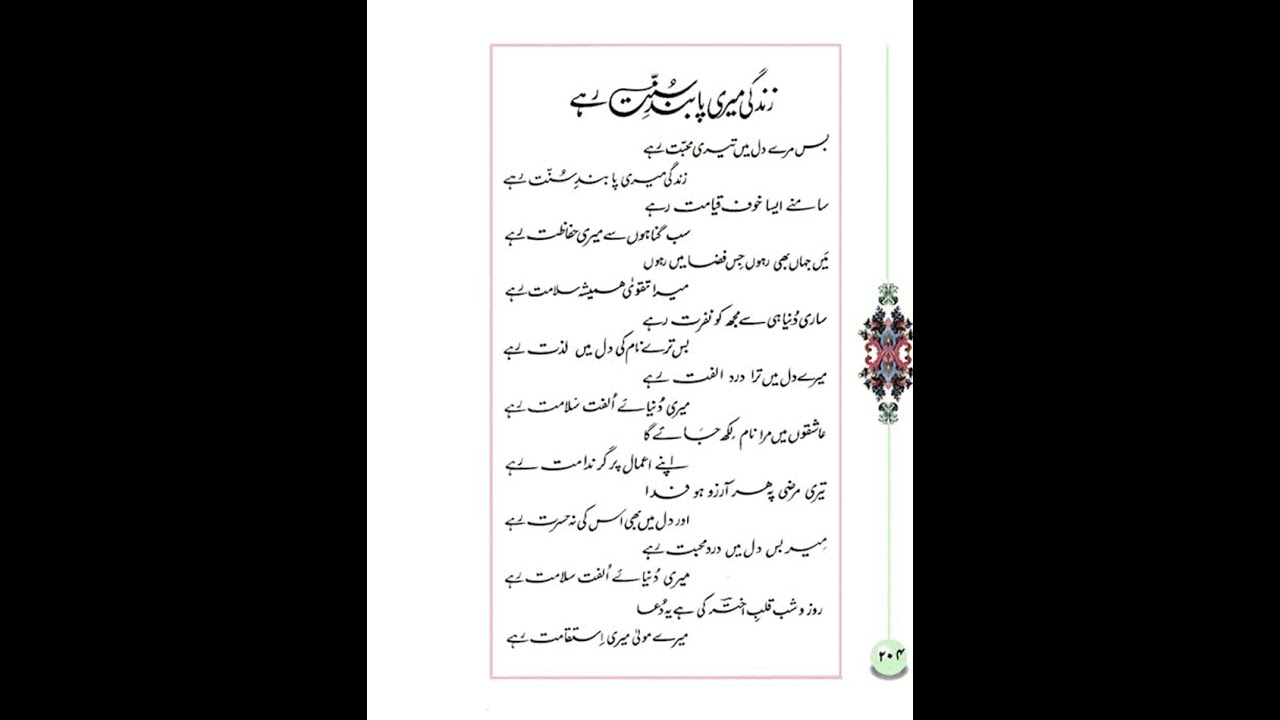 زندگی میری پابندِ سُنّت رہے
بس مرے دل میں تیری محبّت رہے
زندگی میری پابندِ سُنّت رہے
سامنے ایسا خوف قیامت رہے
سب گناہوں سے میری حفاظت رہے
مَیں جہاں بھی رہوں جِس فضا میں رہوں
میرا تقویٰ ہمیشہ سلامت رہے
ساری دُنیا ہی سے مجھ کو نفرت رہے
بس ترے نام کی دل میں لذت رہے
میرے دل میں ترا درد الفت رہے
میری دُنیائے اُلفت سَلامت رہے
عاشقوں میں مرا نام لِکھ جَائے گا
اپنے اعمال پر گر ندامت رہے
تیری مرضی پہ ہر آرزو ہو فدا
اور دل میں بھی اس کی نہ حسرت رہے
مِیر بس دل میں درد محبت رہے
میری دُنیائے اُلفت سلامت رہے
روز و شب قلبِ اختر کی ہے یہ دُعا
میرے مولیٰ میری اِستقامت رہے
۲۰۴